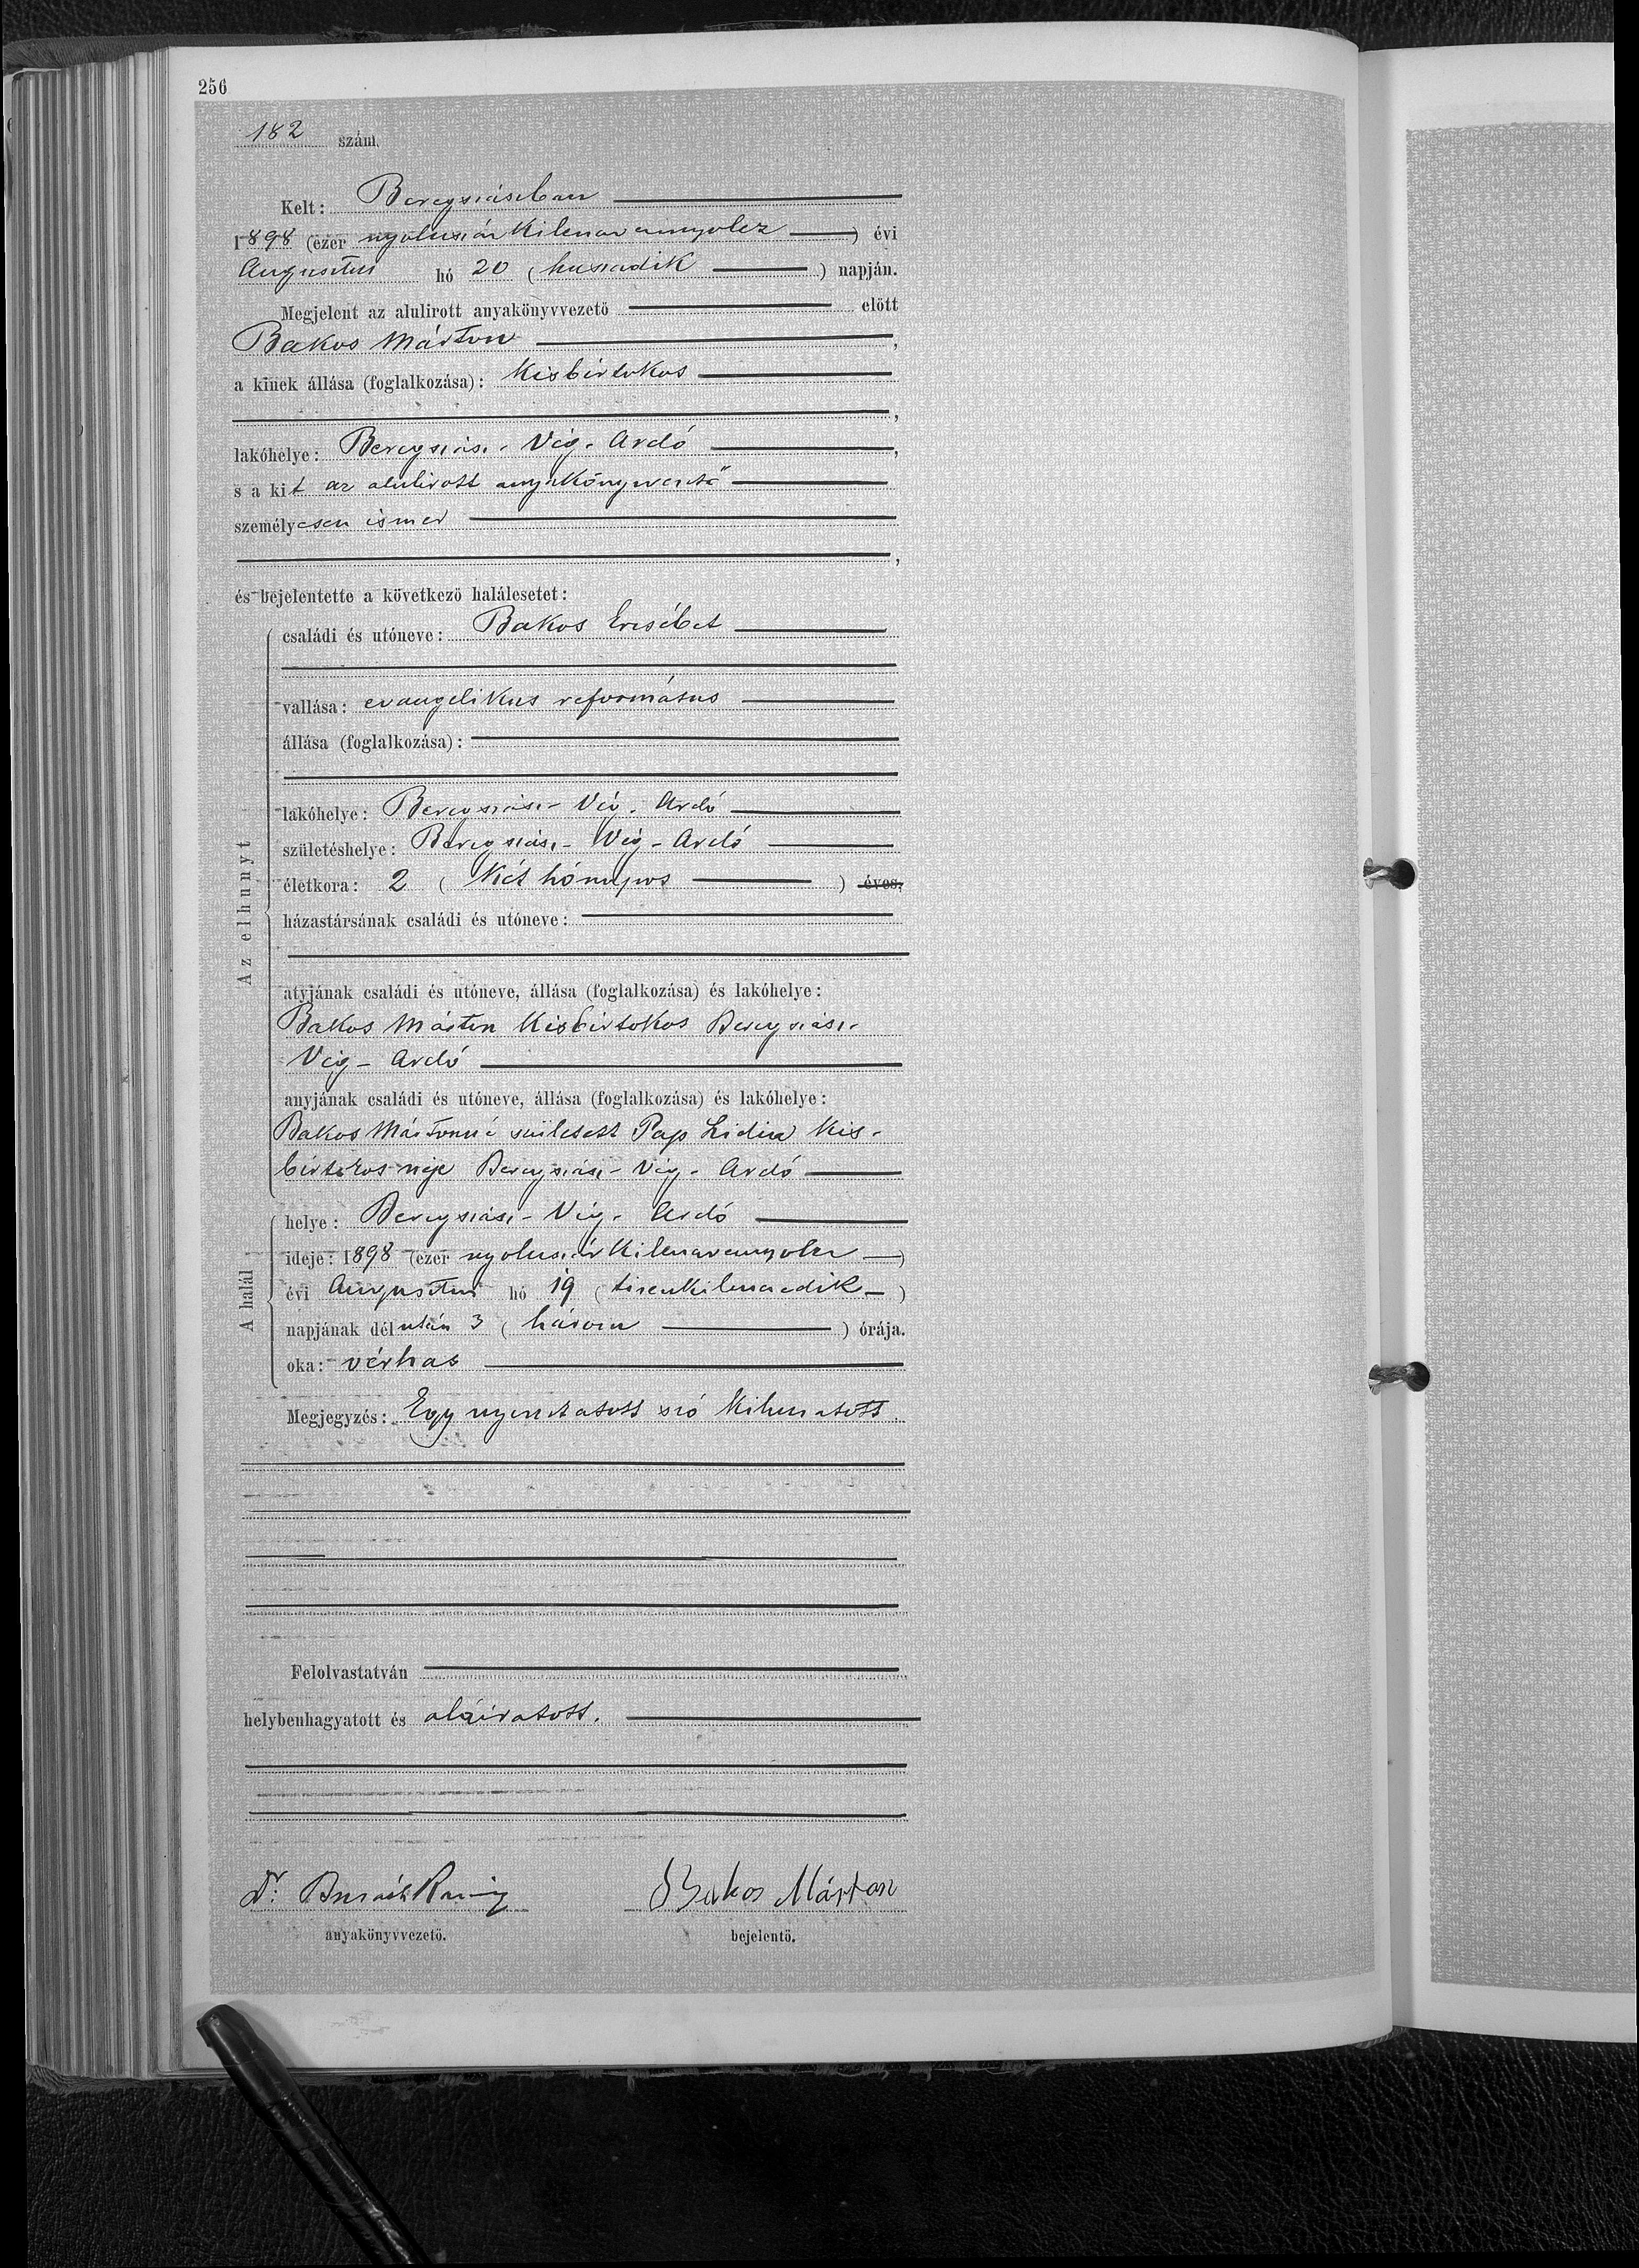 256
182 szám.
Kelt: Beregszászban
1898 (ezer nyolcszázkilenczvennyolcz) évi
Augusztus hó 20 (huszadik) napján.
Megjelent az alulirott anyakönyvvezető előtt
Bakos Márton,
a kinek állása (foglalkozása): Kisbirtokos
,
lakóhelye: Beregszász-Vég-Ardó,
s a kit az alulirott anyakönyvvezető
személyesen ismer
,
és bejelentette a következő halálesetet:
Az elhunyt
családi és utóneve: Bakos Erzsébet
vallása: evangelikus református
állása (foglalkozása):
lakóhelye: Beregszász-Vég-Ardó
születéshelye: Beregszász-Vég-Ardó
életkora: 2 (Két hónapos) éves,
házastársának családi és utóneve:
atyjának családi és utóneve, állása (foglalkozása) és lakóhelye:
Bakos Márton Kisbirtokos Beregszász-
Vég-Ardó
anyjának családi és utóneve, állása (foglalkozása) és lakóhelye:
Bakos Mártonné született Pap Lidia Kis-
birtokos neje Beregszász-Vég-Ardó
A halál
helye: Beregszász-Vég-Ardó
ideje: 1898 (ezer nyolcszázkilenczvennyolcz)
évi Augusztus hó 19 (tizenkilenczedik)
napjának délután 3 (három) órája.
oka: vérhas
Megjegyzés: Egy nyomtatott szó kihuzatott.
Felolvastatván
helybenhagyatott és aláiratott.
Dr. Bakos Márton
anyakönyvvezető. bejelentő.